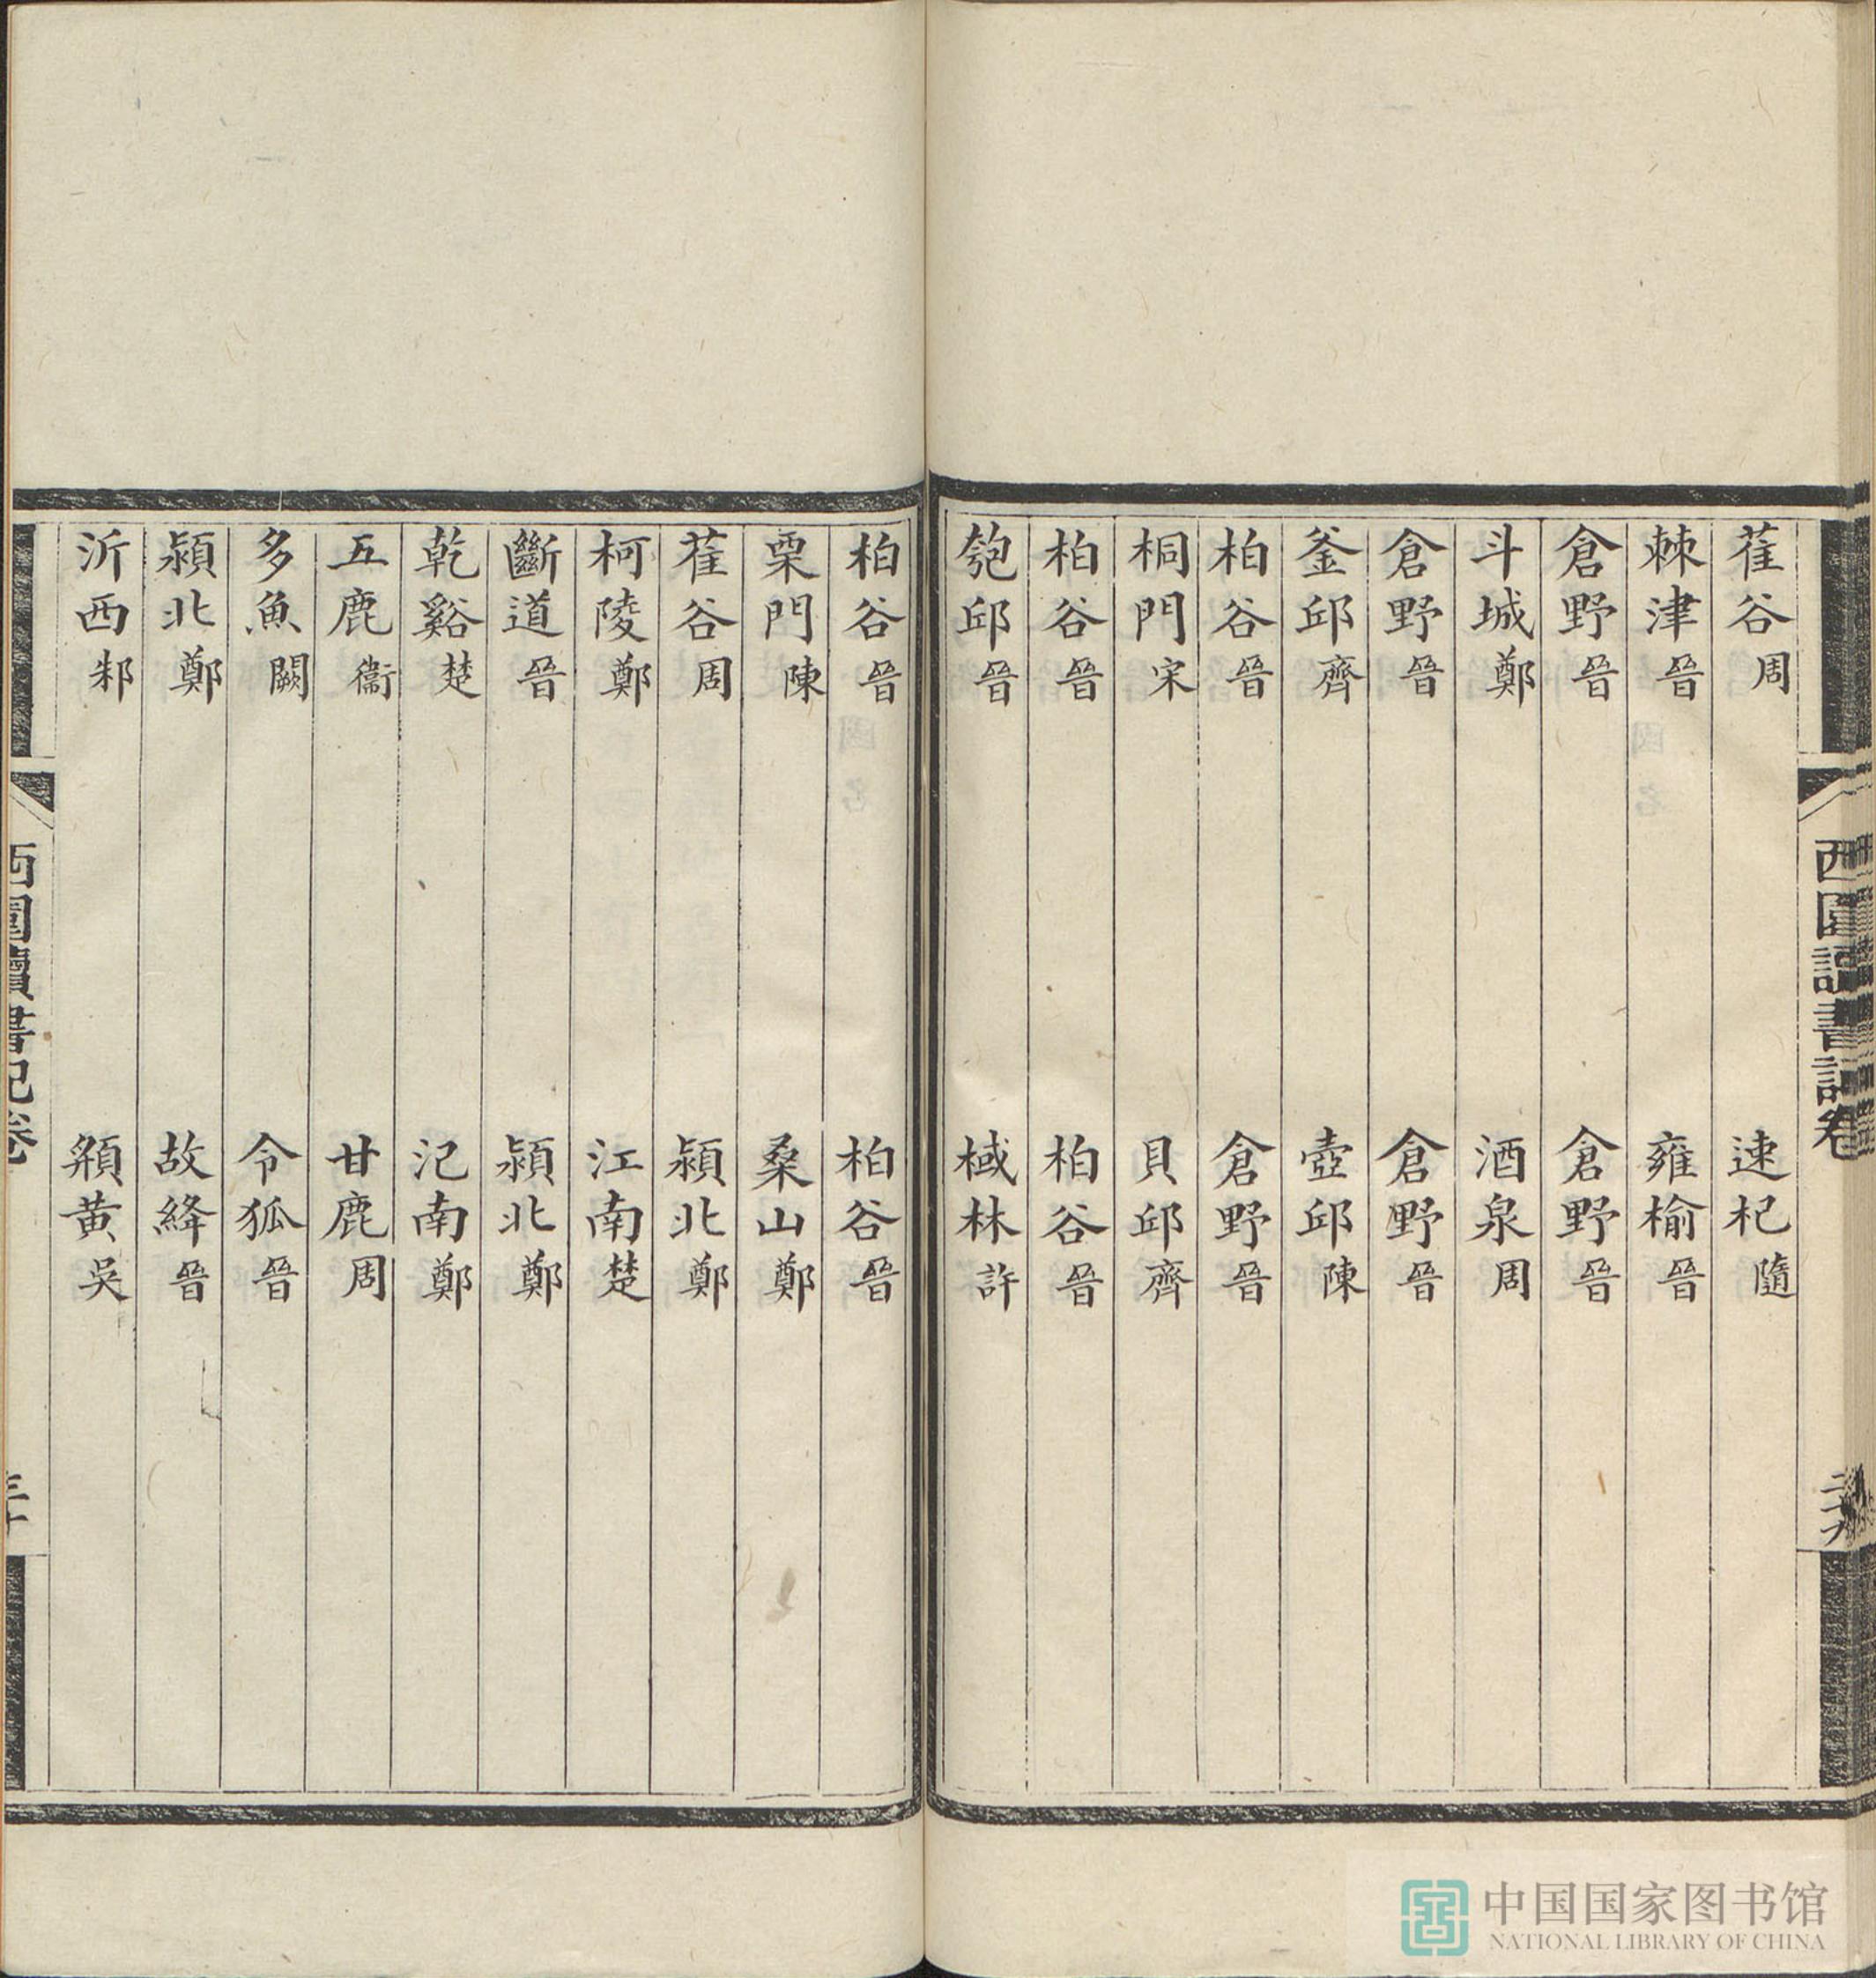 萑谷周 速杞隨
棘津晉 雍榆晉
倉野晉 倉野晉
斗城鄭 酒泉周
倉野晉 倉野晉
釜邱齊 壺邱陳
柏谷晉 倉野晉
桐門宋 貝邱齊
柏谷晉 柏谷晉
匏邱晉 棫林許
西圃讀書記卷
二十九
柏谷晉 柏谷晉
栗門陳 桑山鄭
萑谷周 潁北鄭
柯陵鄭 江南楚
斷道晉 潁北鄭
乾谿楚 氾南鄭
五鹿衞 甘鹿周
多魚闕 令狐晉
潁北鄭 故絳晉
沂西邾 頯黃吳
西圃讀書記卷
三十
中国国家图书馆
NATIONAL LIBRARY OF CHINA